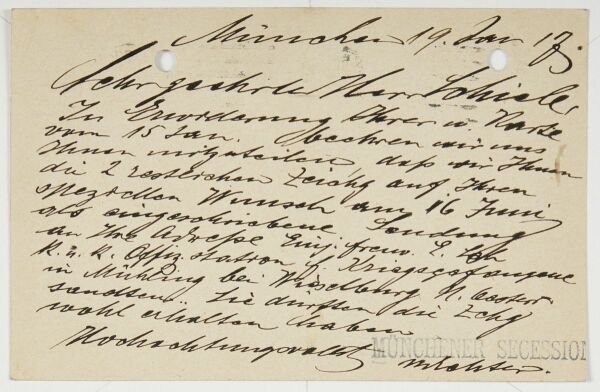 München 19. Jan 17.
Sehr geehrter Herr Schiele,
In Erwiderung Ihrer w. Karte
vom 15 Jan. beehren wir uns
Ihnen mitzuteilen, daß wir Ihnen
die 2 restlichen Zeichg auf Ihren
speziellen Wunsch am 16 Juni
als eingeschriebene Sendung
an Ihre Adresse Einj. freiw. E. Sch
K. u. K. Offiz. station f. Kriegsgefangene
in Mühling bei Wieselburg N. Oesterr
sandten. Sie dürften die Zchg
wohl erhalten haben
Hochachtungsvollst
MÜNCHENER SECESSION